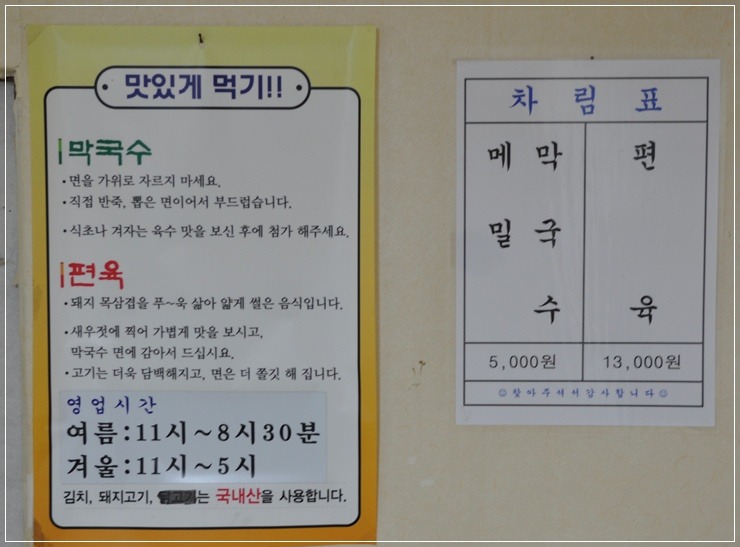 맛있게 먹기!!
막국수
• 면을 가위로 자르지 마세요.
• 직접 반죽, 뽑은 면이어서 부드럽습니다.
• 식초나 겨자는 육수 맛을 보신 후에 첨가 해주세요.
편육
• 돼지 목삼겹을 푸~욱 삶아 얇게 썰은 음식입니다.
• 새우젓에 찍어 가볍게 맛을 보시고,
막국수 면에 감아서 드십시요.
• 고기는 더욱 담백해지고, 면은 더 쫄깃 해 집니다.
영업시간
여름:11시~8시30분
겨울:11시~5시
김치, 돼지고기, 는 국내산을 사용합니다.
차 림 표
메밀 막국수
편육
5,000원
13,000원
☺찾아주셔서감사합니다☺